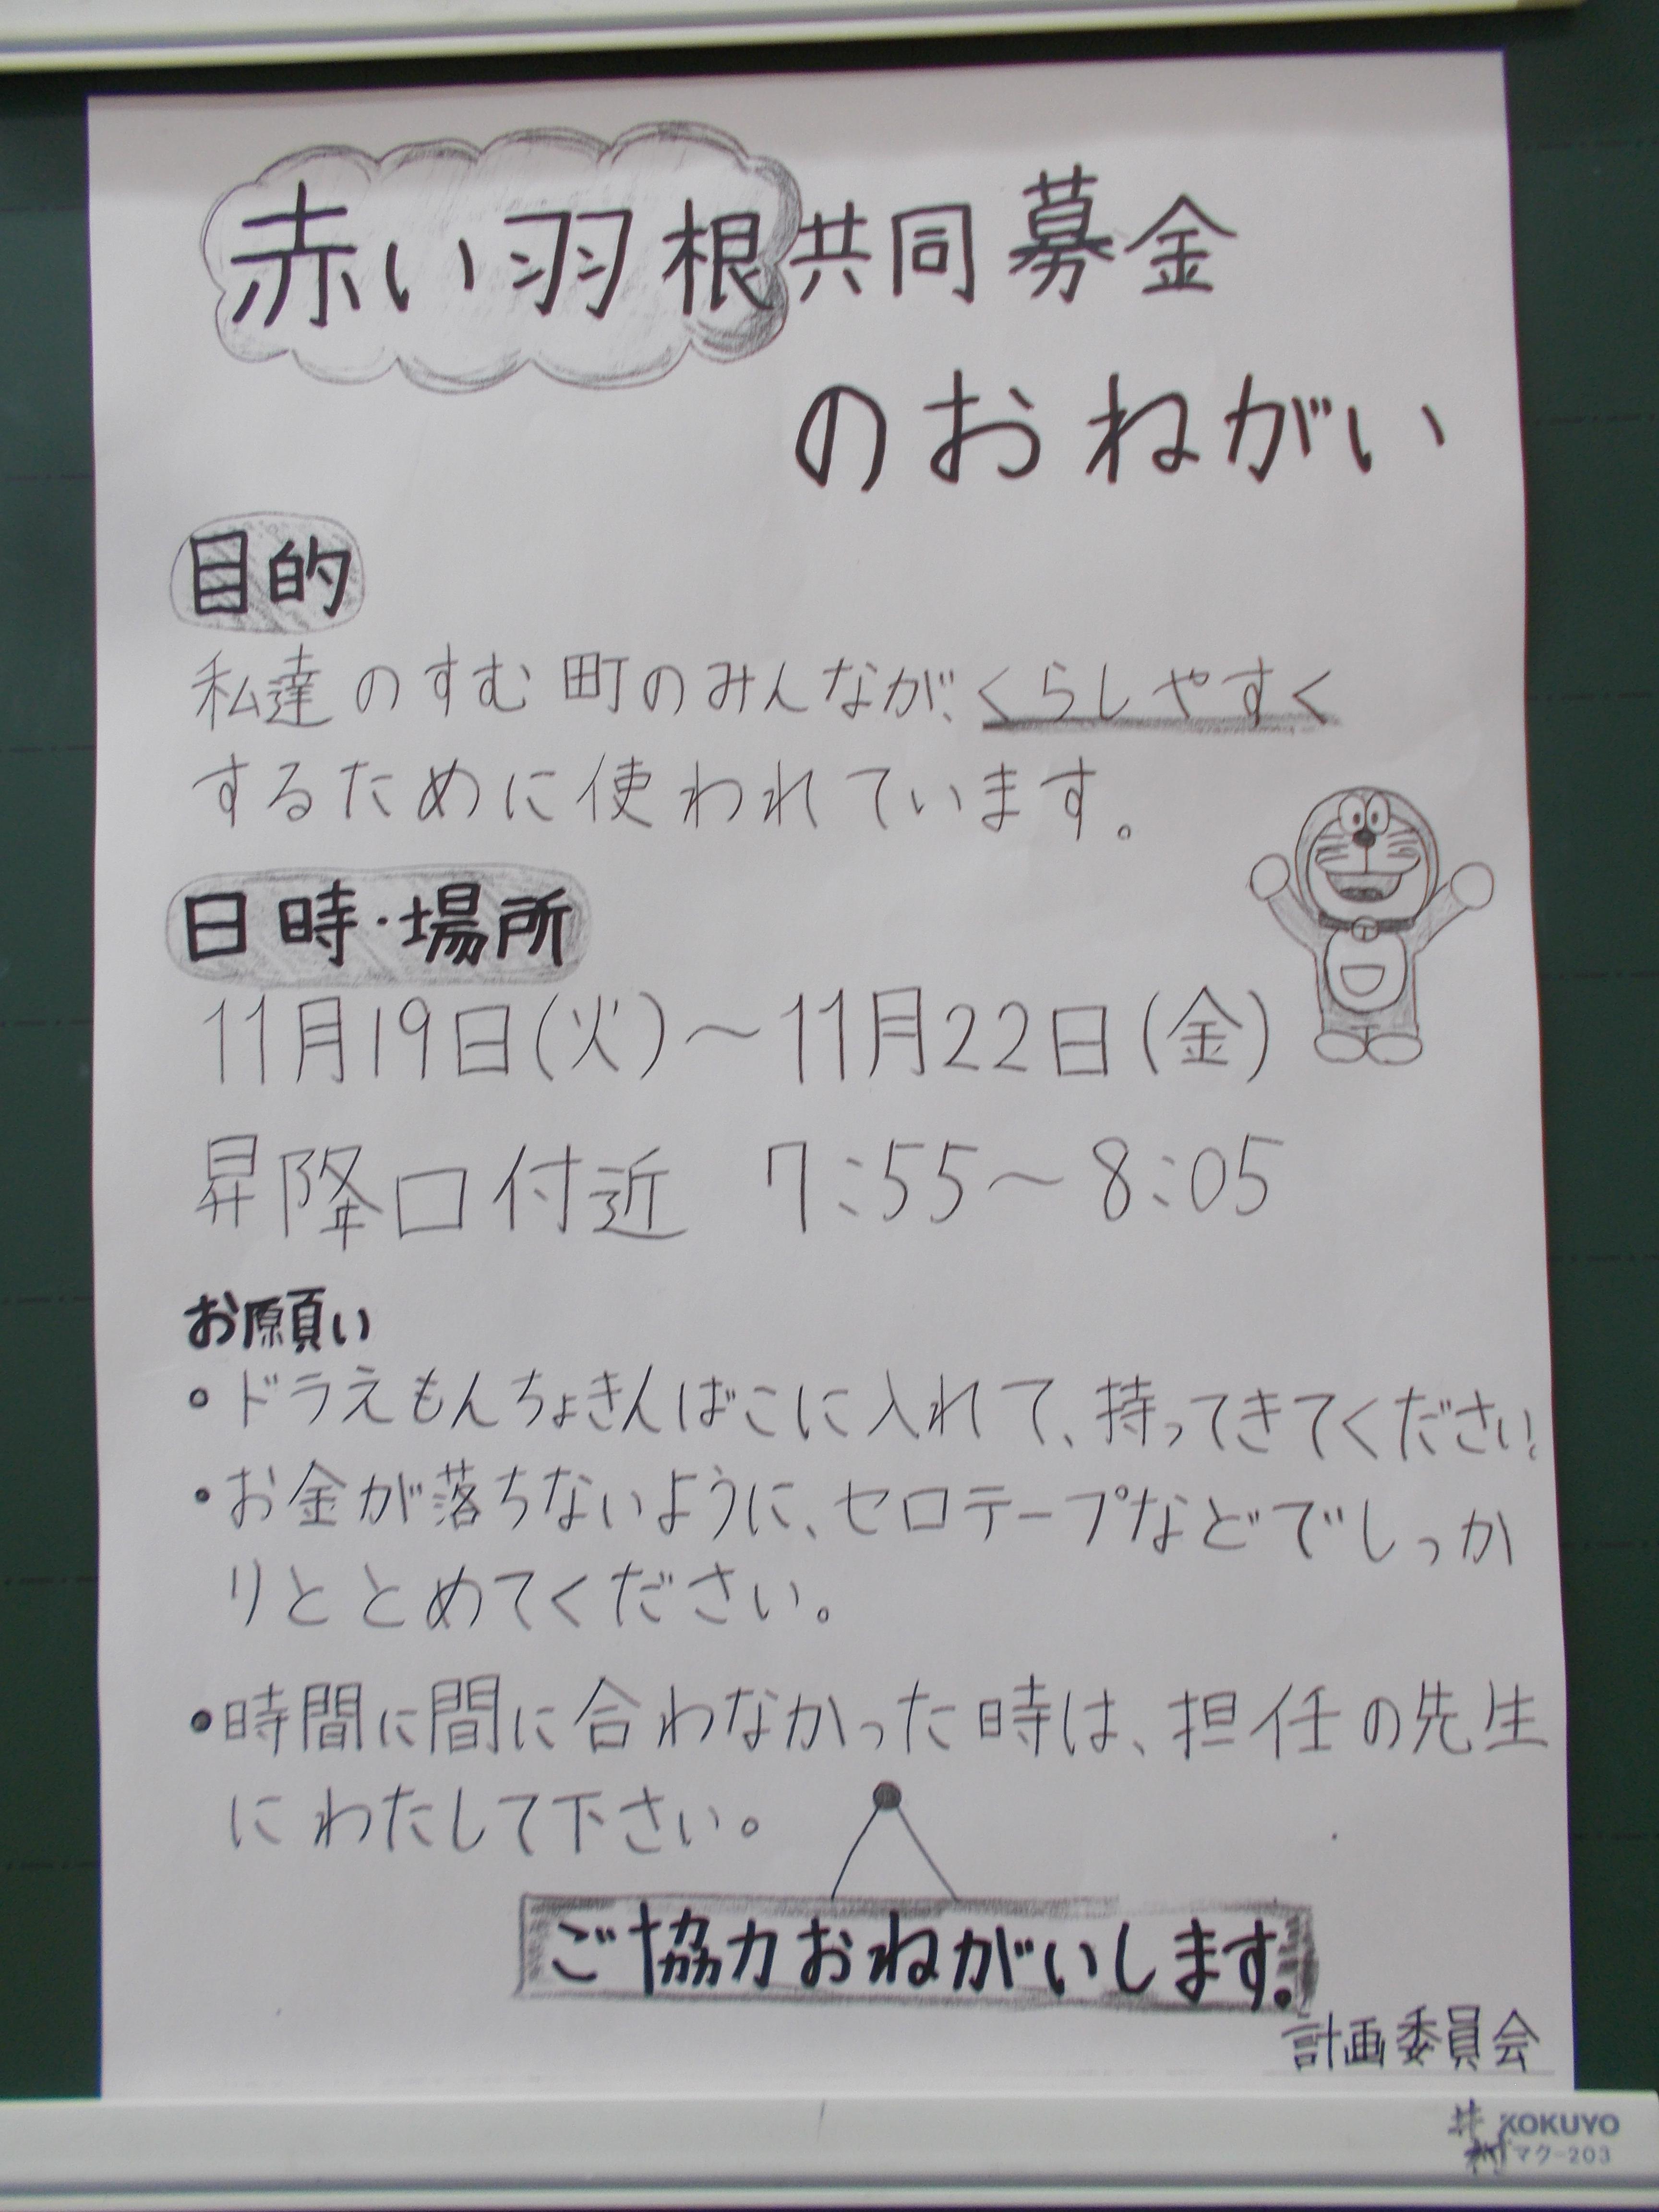 赤い羽根共同募金
のおねがい
目的
私達のすむ町のみんなが、くらしやすく
するために使われています。
日時・場所
11月19日(火)～11月22日(金)
昇降口付近 7:55～8:05
お願い
・ドラえもんちょきんばこに入れて、持ってきてください。
・お金が落ちないように、セロテープなどでしっか
りととめてください。
・時間に間に合わなかった時は、担任の先生
にわたして下さい。
ご協力おねがいします。
計画委員会
KOKUYO
マク-203